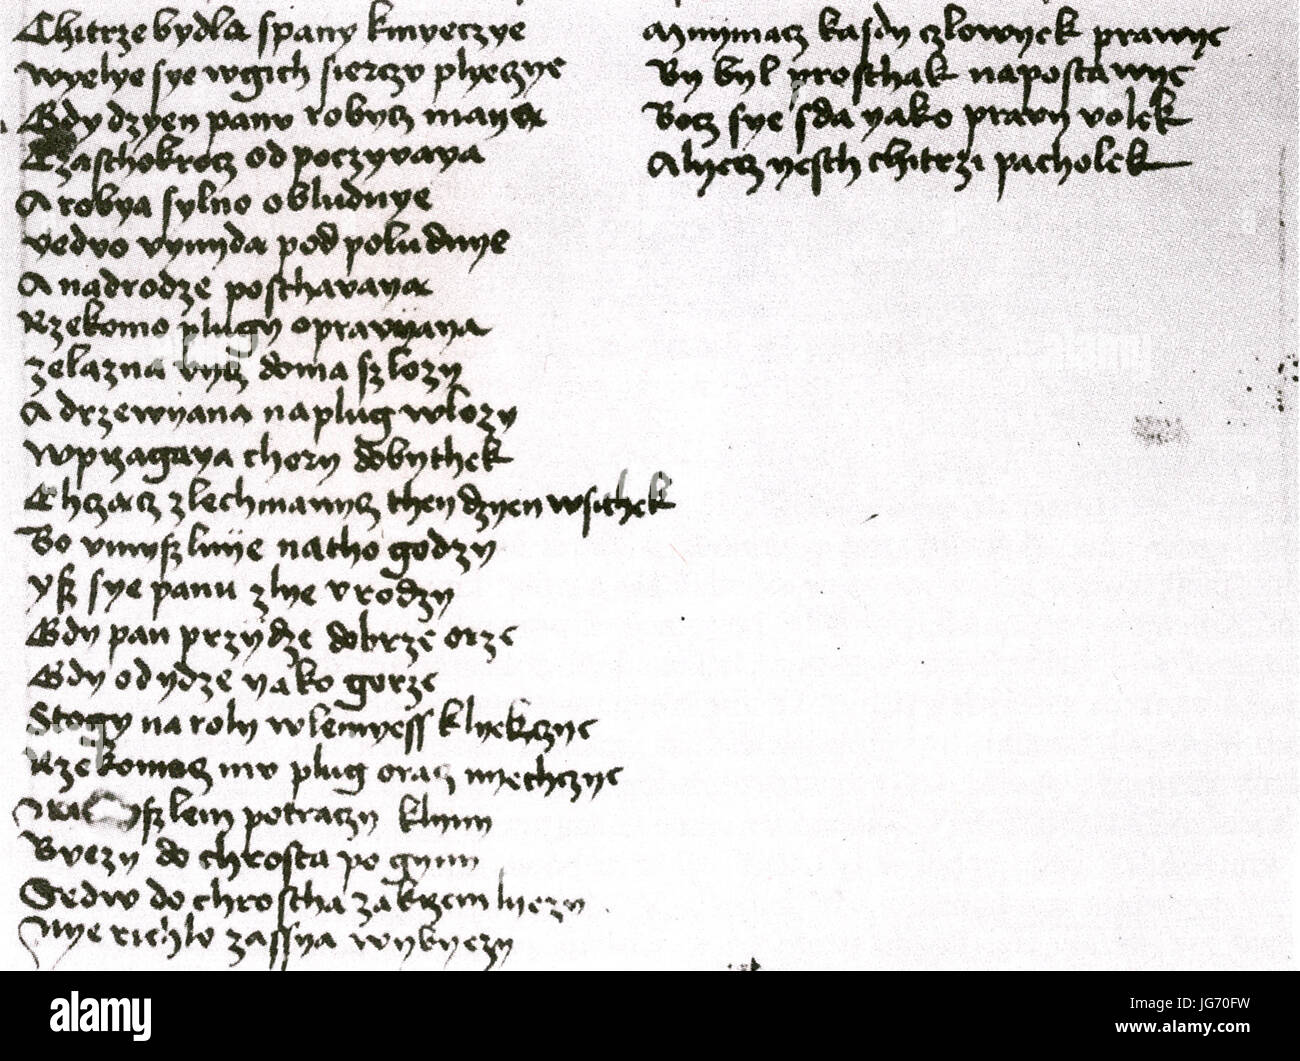 Chitrze bydla spany kmyeczye
wyelye sye wgich sierczv plyeczye
Gdy dzyen panv robycz maya
Czaschokrocz od poczyvaya
A robya sylno obludnye
vedvo vynyda pod poludnye
A nadrodze posthavaya
Rzekomo plugy opravyaya
zelazna vycz doma szlozy
A drzewyana naplug wlozy
wprzagaya chory dobythek
Chczacz zlechmanycz then dzyen wsitek
Bo vmyszlnye natho godzy
ysz sye panu zlye vrodzy
Gdy pan przydze dobrze orze
Gdy odydze yako gorze
Stogy na roly wlemyess klyekczye
Rzekomocz mv plug oracz nyechczye
szlem potraczy klynn
Byezy do chrosta po gynn
Sedw do chrostha zakrzem lyezy
Nye richlo zassya wybyezy
Mnymacz kasdy czlowyek prawye
By byl prosthak napostawye
Bocz sye sda yako pravy volek
Alyecz yesth chitrzi pacholek
alamy
alamy
JG70FW
www.alamy.com